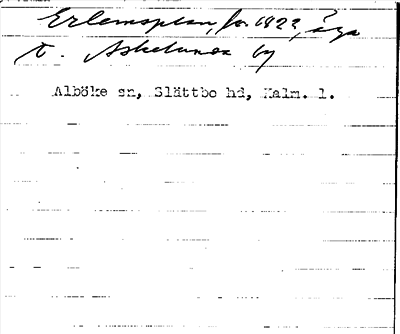 Erlemsplan, fr. 1922, äga
t. Askelunda by
Alböke sn, Slättbo hd, Kalm. l.